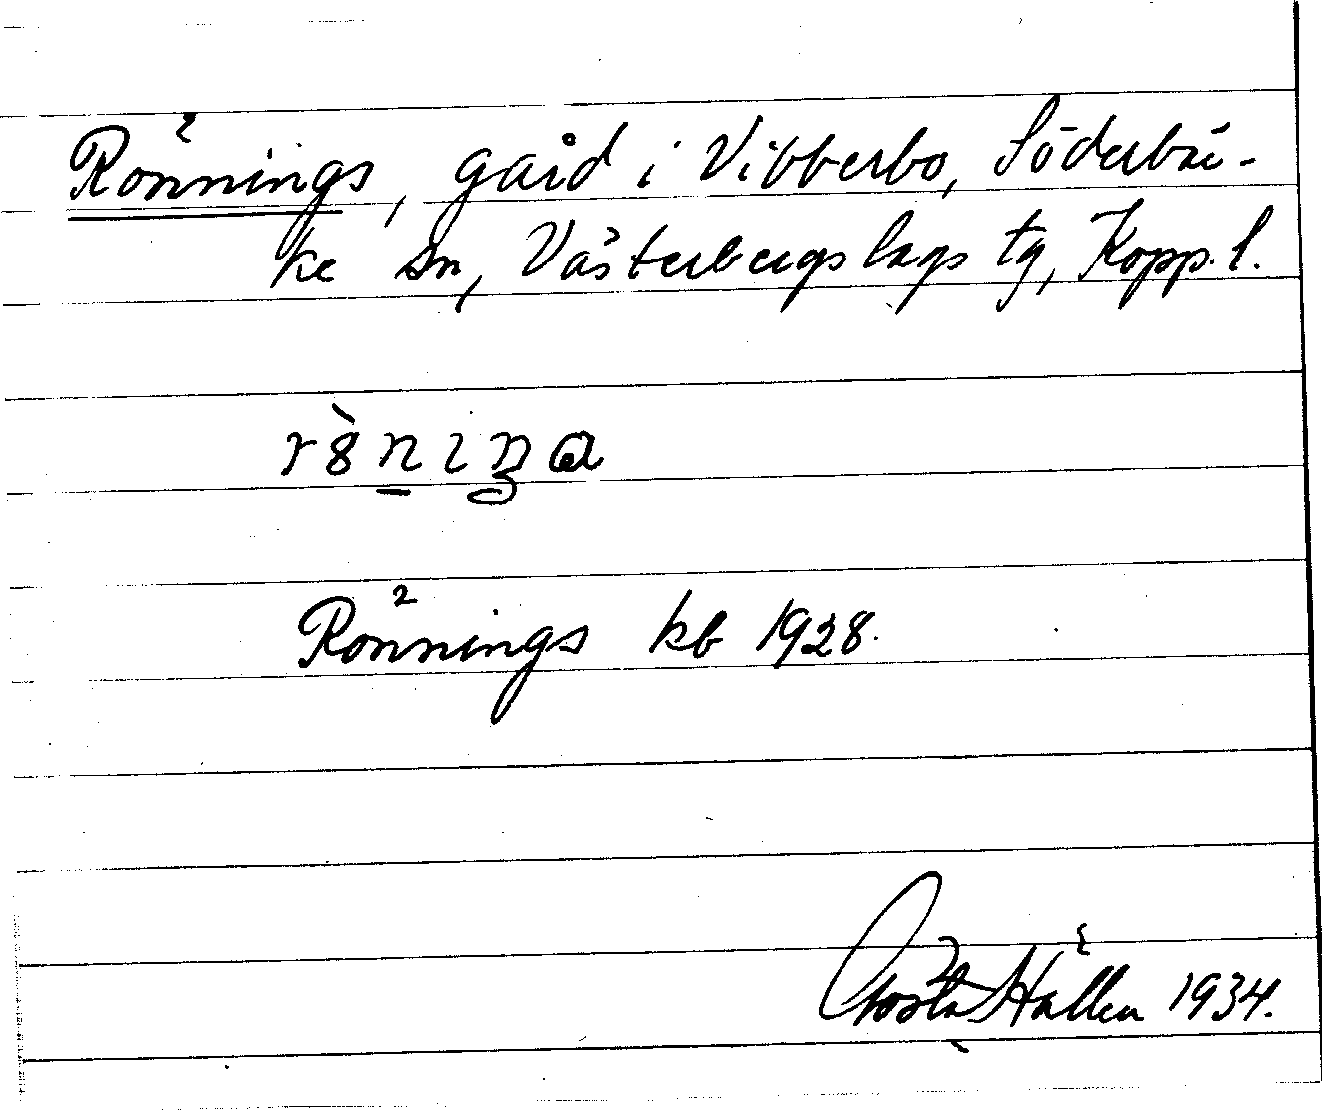 Rönnings, gård i Vibberbo, Söderbär-
ke sn, Västerbergslags tg, Kopp. l.
Rönnings kb 1928.
Gösta Hällen 1934.